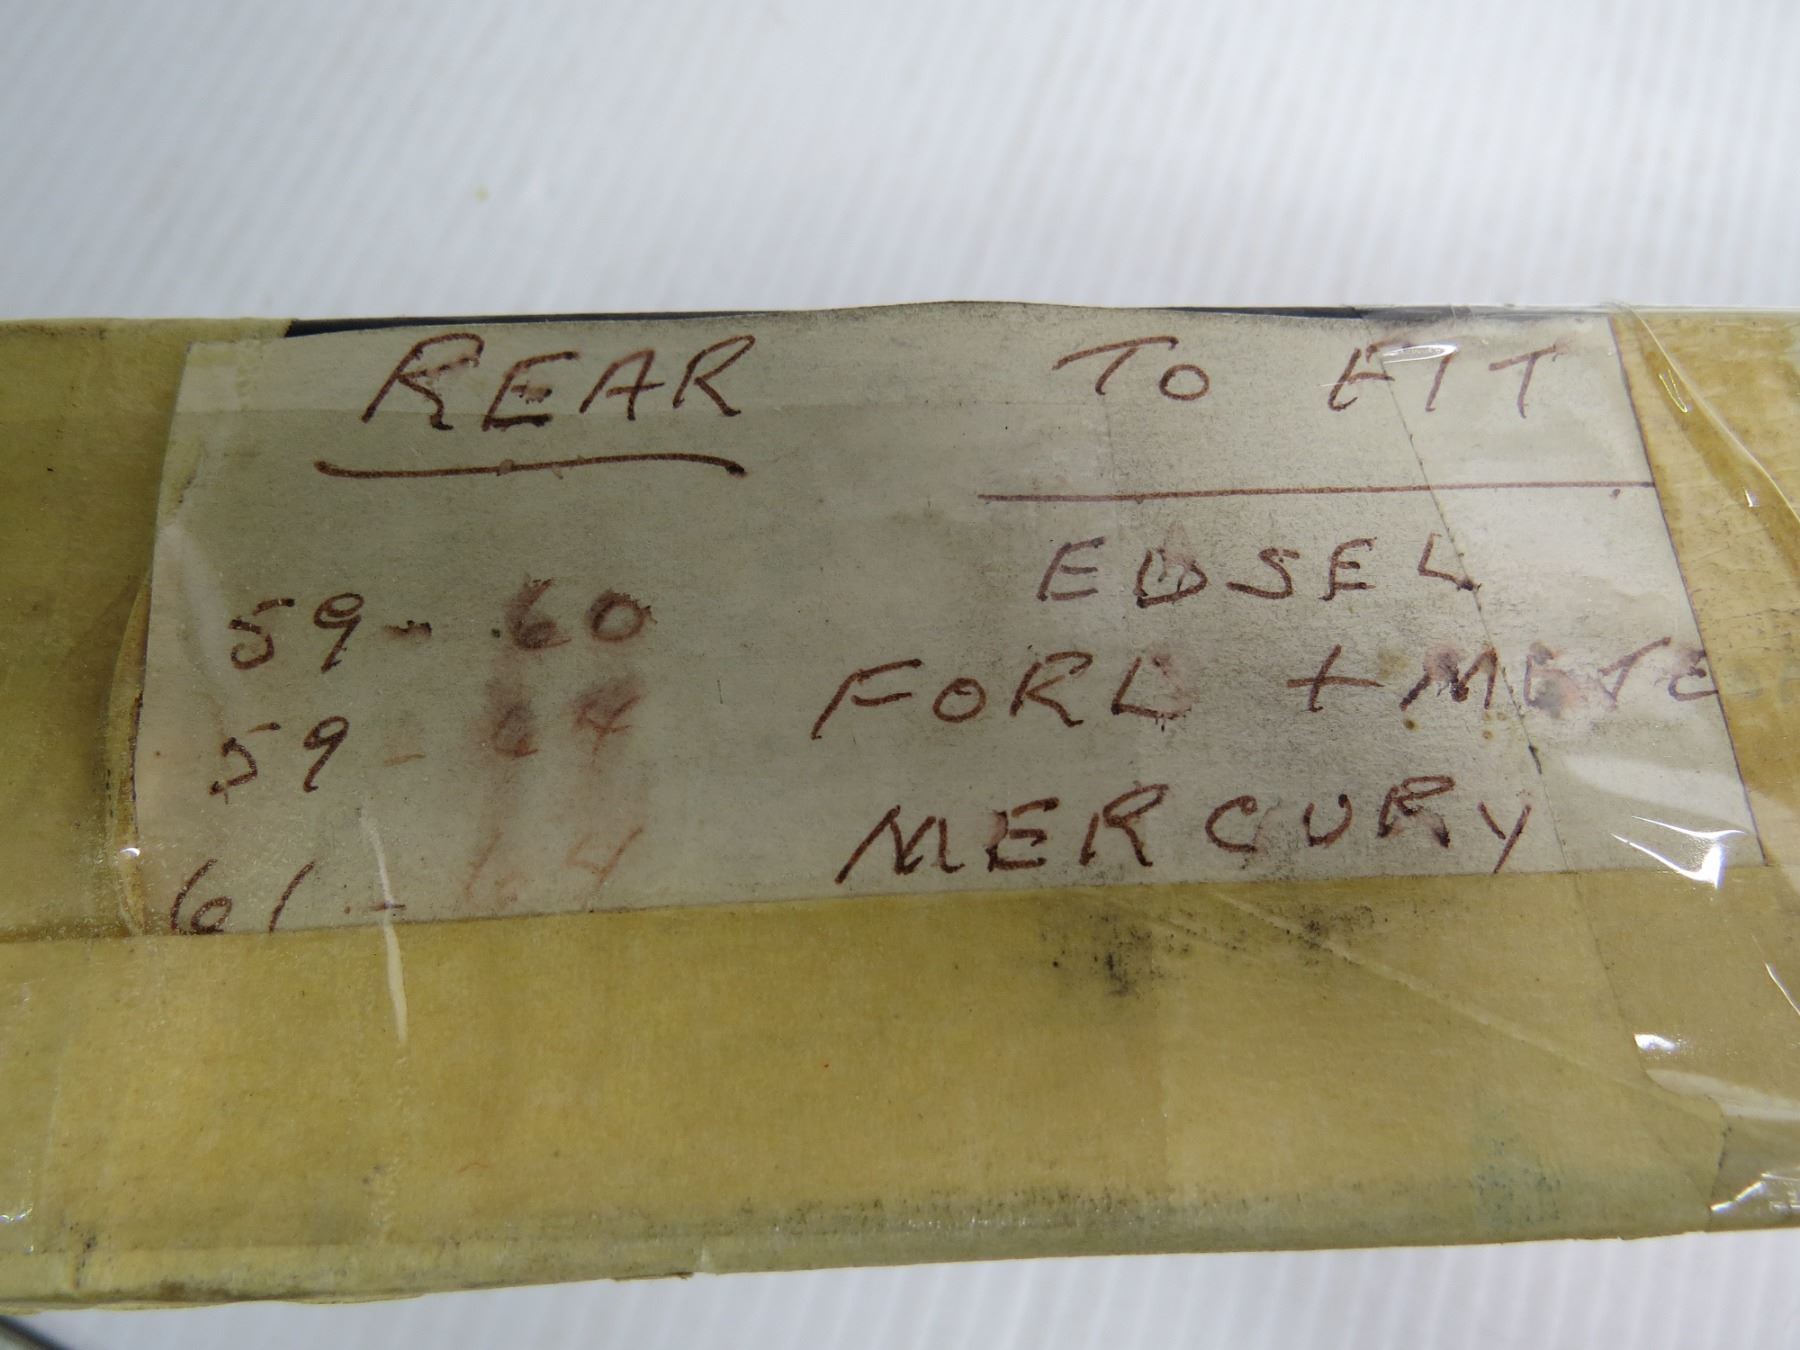 REAR TO FIT
59-60 EDSEL
59-64 FORD + METEOR
61-64 MERCURY